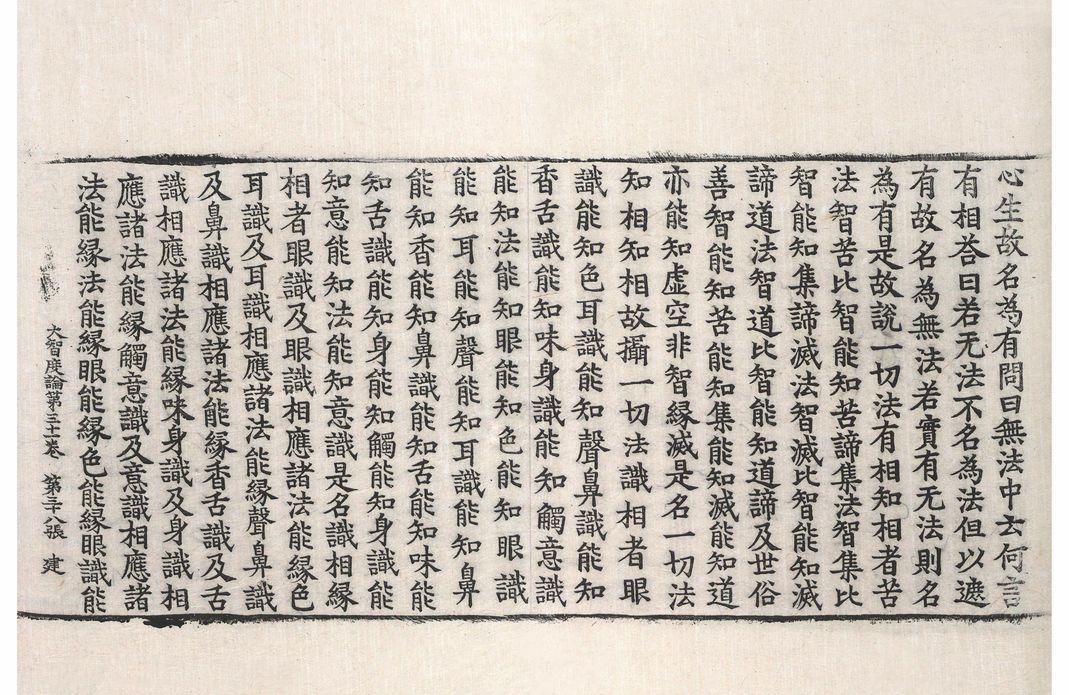 心生故名為有問曰無法中云何言
有相荅曰若无法不名為法但以遮
有故名為無法若實有无法則名
為有是故說一切法有相知相者苦
法智苦比智能知苦諦集法智集比
智能知集諦滅法智滅比智能知滅
諦道法智道比智能知道諦及世俗
善智能知苦能知集能知滅能知道
亦能知虛空非智緣滅是名一切法
知相知相故攝一切法識相者眼
識能知色耳識能知聲鼻識能知
香舌識能知味身識能知觸意識
能知法能知眼能知色能知眼識
能知耳能知聲能知耳識能知鼻
能知香能知鼻識能知舌能知味能
知舌識能知身能知觸能知身識能
知意能知法能知意識是名識相緣
相者眼識及眼識相應諸法能緣色
耳識及耳識相應諸法能緣聲鼻識
及鼻識相應諸法能緣香舌識及舌
識相應諸法能緣味身識及身識相
應諸法能緣觸意識及意識相應諸
法能緣法能緣眼能緣色能緣眼識能
大智度論第三十一卷 第三十八張 建